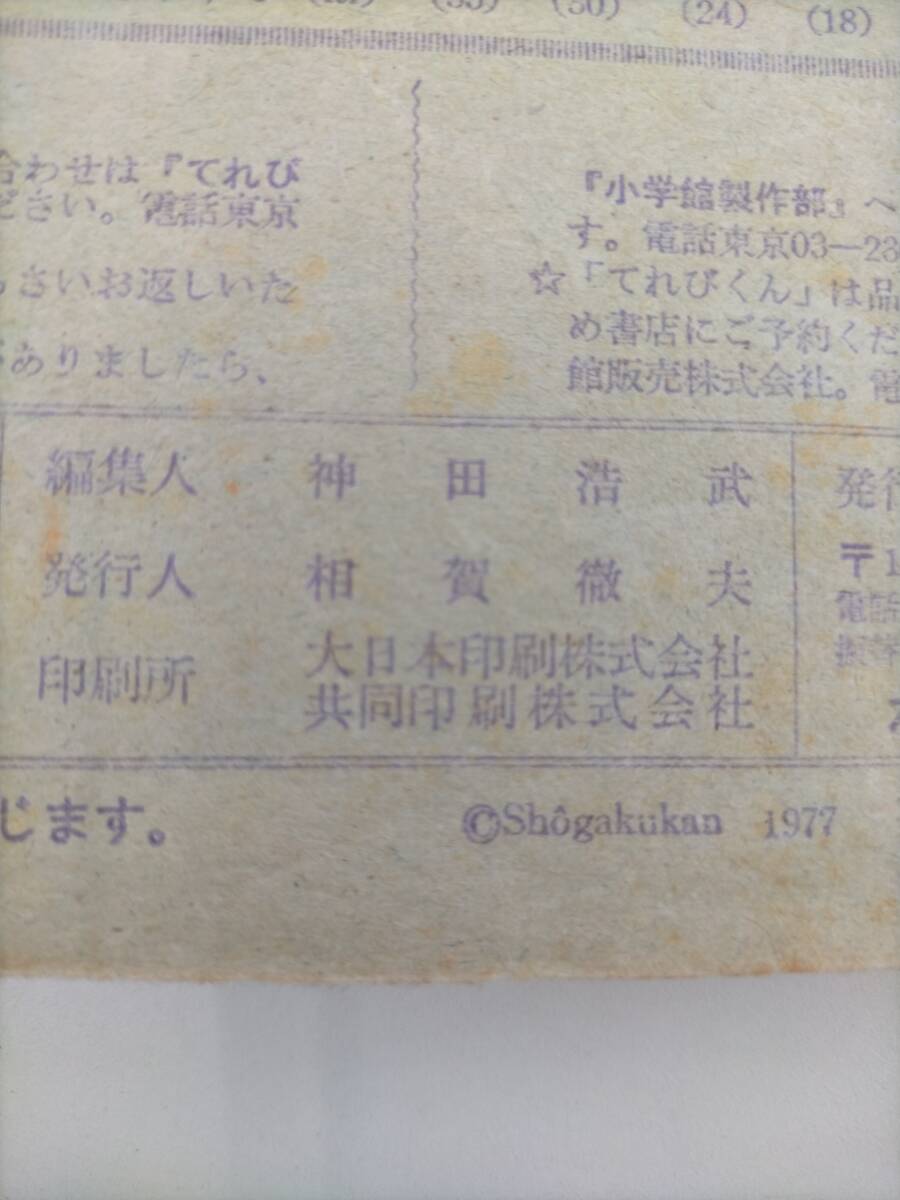 (30) (24) (18)
合わせは『てれび
ださい。電話東京
っさいお返しいた
がありましたら、
『小学館製作部』へ
す。電話東京03—23
☆「てれびくん」は品
め書店にご予約くだ
館販売株式会社。電
編集人 神田浩武
発行人 相賀徹夫
印刷所 大日本印刷株式会社
共同印刷株式会社
発行
〒1
電話
振替
じます。
©Shôgakukan 1977